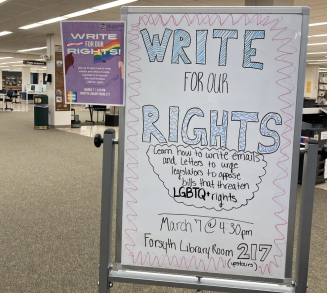 WRITE
FOR OUR
RIGHTS!
WRITE
FOR OUR
RIGHTS
Learn how to write emails
and letters to urge
legislators to oppose
bills that threaten
LGBTQ+ rights
March 7 @ 4:30pm
Forsyth Library Room 217
(upstairs)